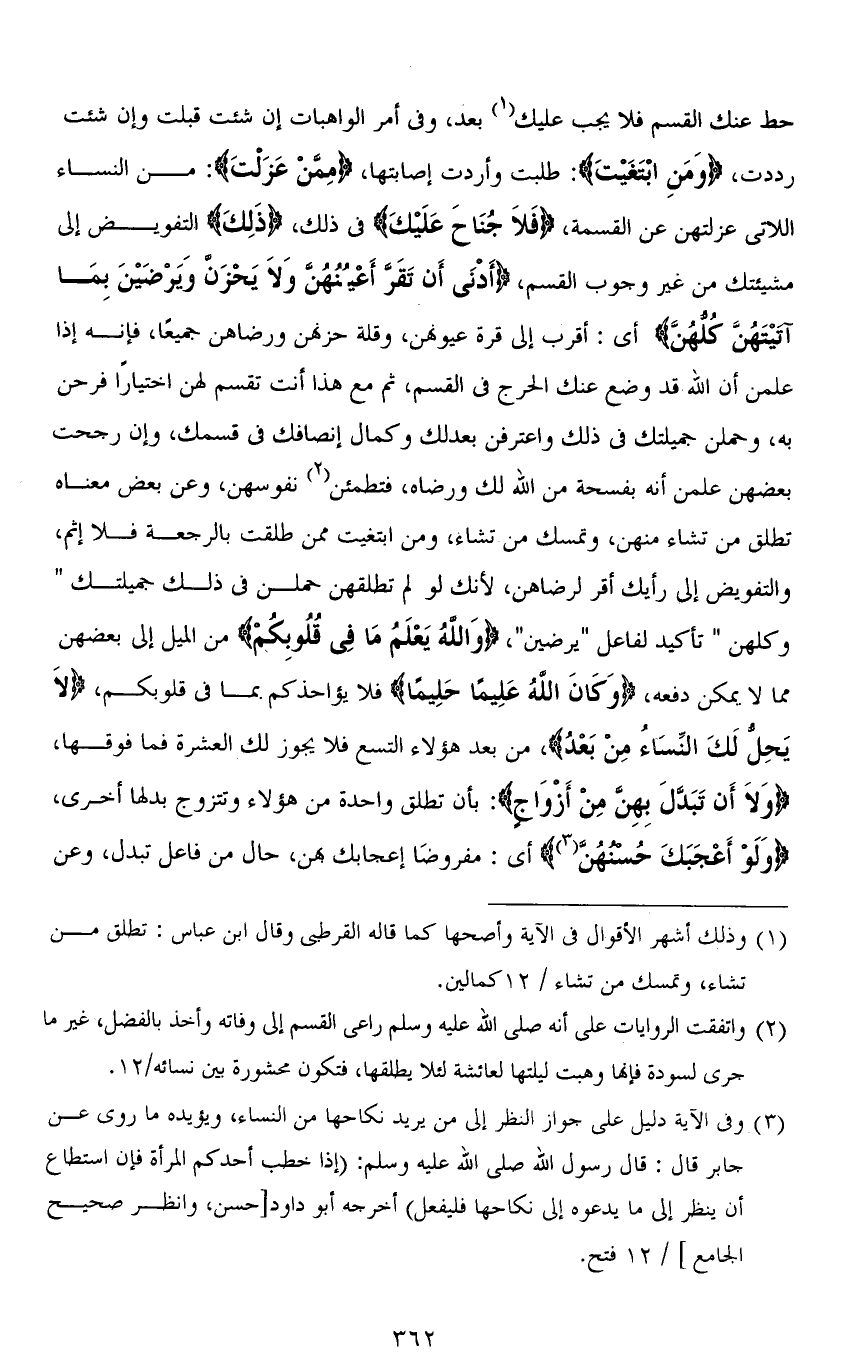 حط عنك القسم فلا يجب عليك(١) بعد، وفى أمر الواهبات إن شئت قبلت وإن شئت
رددت، ﴿وَمَنِ ابْتَغَيْتَ﴾: طلبت وأردت إصابتها، ﴿مِمَّنْ عَزَلْتَ﴾: مـــن النســـاء
اللاتى عزلتهن عن القسمة، ﴿فَلاَ جُنَاحَ عَلَيْكَ﴾ فى ذلك، ﴿ذَلِكَ﴾ التفويـــض إلى
مشيئتك من غير وجوب القسم، ﴿أَدْنَى أَن تَقَرَّ أَعْيُنُهُنَّ وَلاَ يَحْزَنَّ وَيَرْضَيْنَ بِمَـــا
آتَيْتَهُنَّ كُلُّهُنَّ﴾ أى : أقرب إلى قرة عيونهن، وقلة حزنهن ورضاهن جميعًا، فإنـــه إذا
علمن أن الله قد وضع عنك الحرج فى القسم، ثم مع هذا أنت تقسم لهن اختيارًا فرحن
به، وحملن جميلتك فى ذلك واعترفن بعدلك وكمال إنصافك فى قسمك، وإن رجحت
بعضهن علمن أنه بفسحة من الله لك ورضاه، فتطمئن(٢) نفوسهن، وعن بعض معنـــاه
تطلق من تشاء منهن، وتمسك من تشاء، ومن ابتغيت ممن طلقت بالرجعـــة فـــلا إثم،
والتفويض إلى رأيك أقر لرضاهن، لأنك لو لم تطلقهن حملـــن فى ذلـــك جميلتـــك "
وكلهن " تأكيد لفاعل "يرضين"، ﴿وَاللَّهُ يَعْلَمُ مَا فِى قُلُوبِكُمْ﴾ من الميل إلى بعضهن
مما لا يمكن دفعه، ﴿وَكَانَ اللَّهُ عَلِيمًا حَلِيمًا﴾ فلا يؤاخذكم بمـــا فى قلوبكـــم، ﴿لاَ
يَحِلُّ لَكَ النِّسَاءُ مِنْ بَعْدُ﴾، من بعد هؤلاء التسع فلا يجوز لك العشرة فما فوقـــها،
﴿وَلاَ أَن تَبَدَّلَ بِهِنَّ مِنْ أَزْوَاجٍ﴾: بأن تطلق واحدة من هؤلاء وتتزوج بدلها أخـرى،
﴿وَلَوْ أَعْجَبَكَ حُسْنُهُنَّ(٣)﴾ أى : مفروضًا إعجابك بهن، حال من فاعل تبدل، وعن
(١) وذلك أشهر الأقوال فى الآية وأصحها كما قاله القرطبى وقال ابن عباس : تطلق مـــن
تشاء، وتمسك من تشاء / ١٢ كمالين.
(٢) واتفقت الروايات على أنه صلى الله عليه وسلم راعى القسم إلى وفاته وأخذ بالفضل، غير ما
جرى لسودة فإنها وهبت ليلتها لعائشة لئلا يطلقها، فتكون محشورة بين نسائه/١٢.
(٣) وفى الآية دليل على جواز النظر إلى من يريد نكاحها من النساء، ويؤيده ما روى عـــن
جابر قال : قال رسول الله صلى الله عليه وسلم: (إذا خطب أحدكم المرأة فإن استطاع
أن ينظر إلى ما يدعوه إلى نكاحها فليفعل) أخرجه أبو داود[حسن، وانظـــر صحيـــح
الجامع ] / ١٢ فتح.
٣٦٢